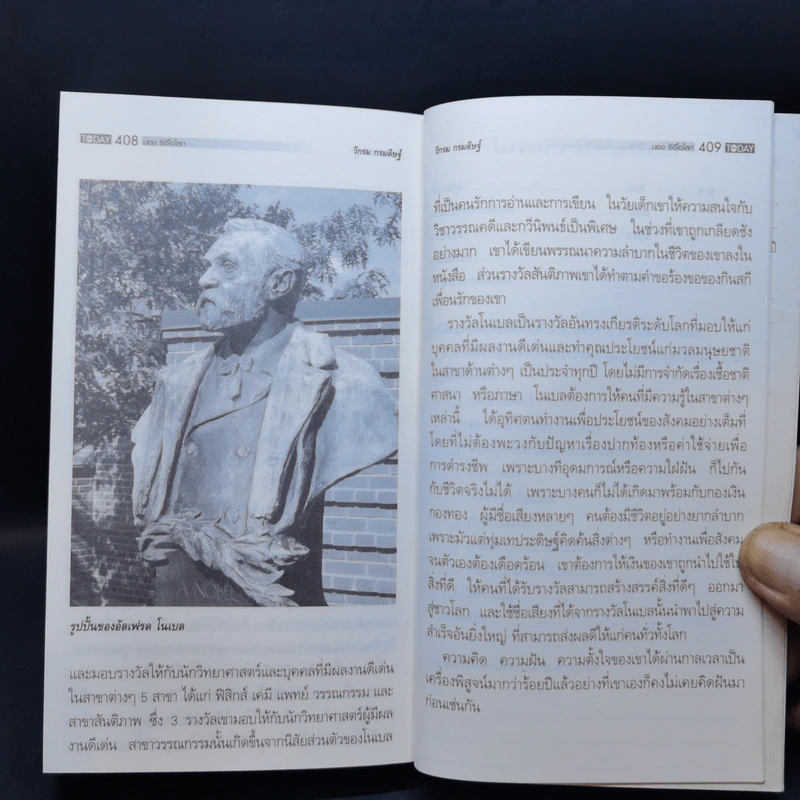 TODAY 408 มอง ซีอีโอโลก
วิกรม กรมดิษฐ์
NOBEL
รูปปั้นของอัลเฟรด โนเบล
และมอบรางวัลให้กับนักวิทยาศาสตร์และบุคคลที่มีผลงานดีเด่น
ในสาขาต่างๆ 5 สาขา ได้แก่ ฟิสิกส์ เคมี แพทย์ วรรณกรรม และ
สาขาสันติภาพ ซึ่ง 3 รางวัลเขามอบให้กับนักวิทยาศาสตร์ผู้มีผล
งานดีเด่น สาขาวรรณกรรมนั้นเกิดขึ้นจากนิสัยส่วนตัวของโนเบล
วิกรม กรมดิษฐ์
มอง ซีอีโอโลก 409 TODAY
ที่เป็นคนรักการอ่านและการเขียน ในวัยเด็กเขาให้ความสนใจกับ
วิชาวรรณคดีและกวีนิพนธ์เป็นพิเศษ ในช่วงที่เขาถูกเกลียดชัง
อย่างมาก เขาได้เขียนพรรณนาความลำบากในชีวิตของเขาลงใน
หนังสือ ส่วนรางวัลสันติภาพเขาได้ทำตามคำขอร้องของกินสกี
เพื่อนรักของเขา
รางวัลโนเบลเป็นรางวัลอันทรงเกียรติระดับโลกที่มอบให้แก่
บุคคลที่มีผลงานดีเด่นและทำคุณประโยชน์แก่มวลมนุษยชาติ
ในสาขาด้านต่างๆ เป็นประจำทุกปี โดยไม่มีการจำกัดเรื่องเชื้อชาติ
ศาสนา หรือภาษา โนเบลต้องการให้คนที่มีความรู้ในสาขาต่างๆ
เหล่านี้ ได้อุทิศตนทำงานเพื่อประโยชน์ของสังคมอย่างเต็มที่
โดยที่ไม่ต้องพะวงกับปัญหาเรื่องปากท้องหรือค่าใช้จ่ายเพื่อ
การดำรงชีพ เพราะบางทีอุดมการณ์หรือความใฝ่ฝัน ก็ไปกัน
กับชีวิตจริงไม่ได้ เพราะบางคนก็ไม่ได้เกิดมาพร้อมกับกองเงิน
กองทอง ผู้มีชื่อเสียงหลายๆ คนต้องมีชีวิตอยู่อย่างยากลำบาก
เพราะมัวแต่ทุ่มเทประดิษฐ์คิดค้นสิ่งต่างๆ หรือทำงานเพื่อสังคม
จนตัวเองต้องเดือดร้อน เขาต้องการให้เงินของเขาถูกนำไปใช้ใน
สิ่งที่ดี ให้คนที่ได้รับรางวัลสามารถสร้างสรรค์สิ่งที่ดีๆ ออกมา
สู่ชาวโลก และใช้ชื่อเสียงที่ได้จากรางวัลโนเบลนั้นนำพาไปสู่ความ
สำเร็จอันยิ่งใหญ่ ที่สามารถส่งผลดีให้แก่คนทั่วทั้งโลก
ความคิด ความฝัน ความตั้งใจของเขาได้ผ่านกาลเวลาเป็น
เครื่องพิสูจน์มากว่าร้อยปีแล้วอย่างที่เขาเองก็คงไม่เคยคิดฝันมา
ก่อนเช่นกัน